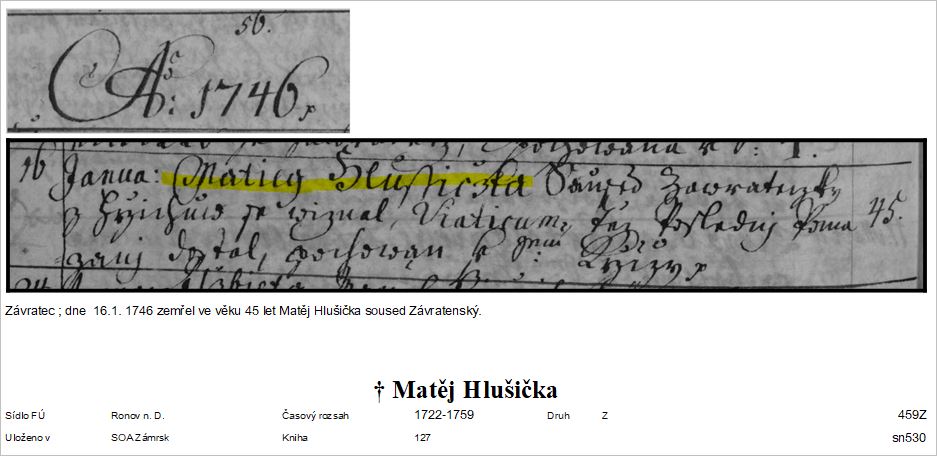 56.
Aō: 1746
16 Janua: Matieg Hlussiczka Saused Zawratensky
z Hržichuw se wiznal, Viaticum, Též Posledny Poma 45.
zany dostal, pochowan k S: Krzizy
Závratec ; dne 16.1. 1746 zemřel ve věku 45 let Matěj Hlušička soused Závratenský.
† Matěj Hlušička
Sídlo FÚ Ronov n. D. Časový rozsah 1722-1759 Druh Z 459Z
Uloženo v SOA Zámrsk Kniha 127 sn530